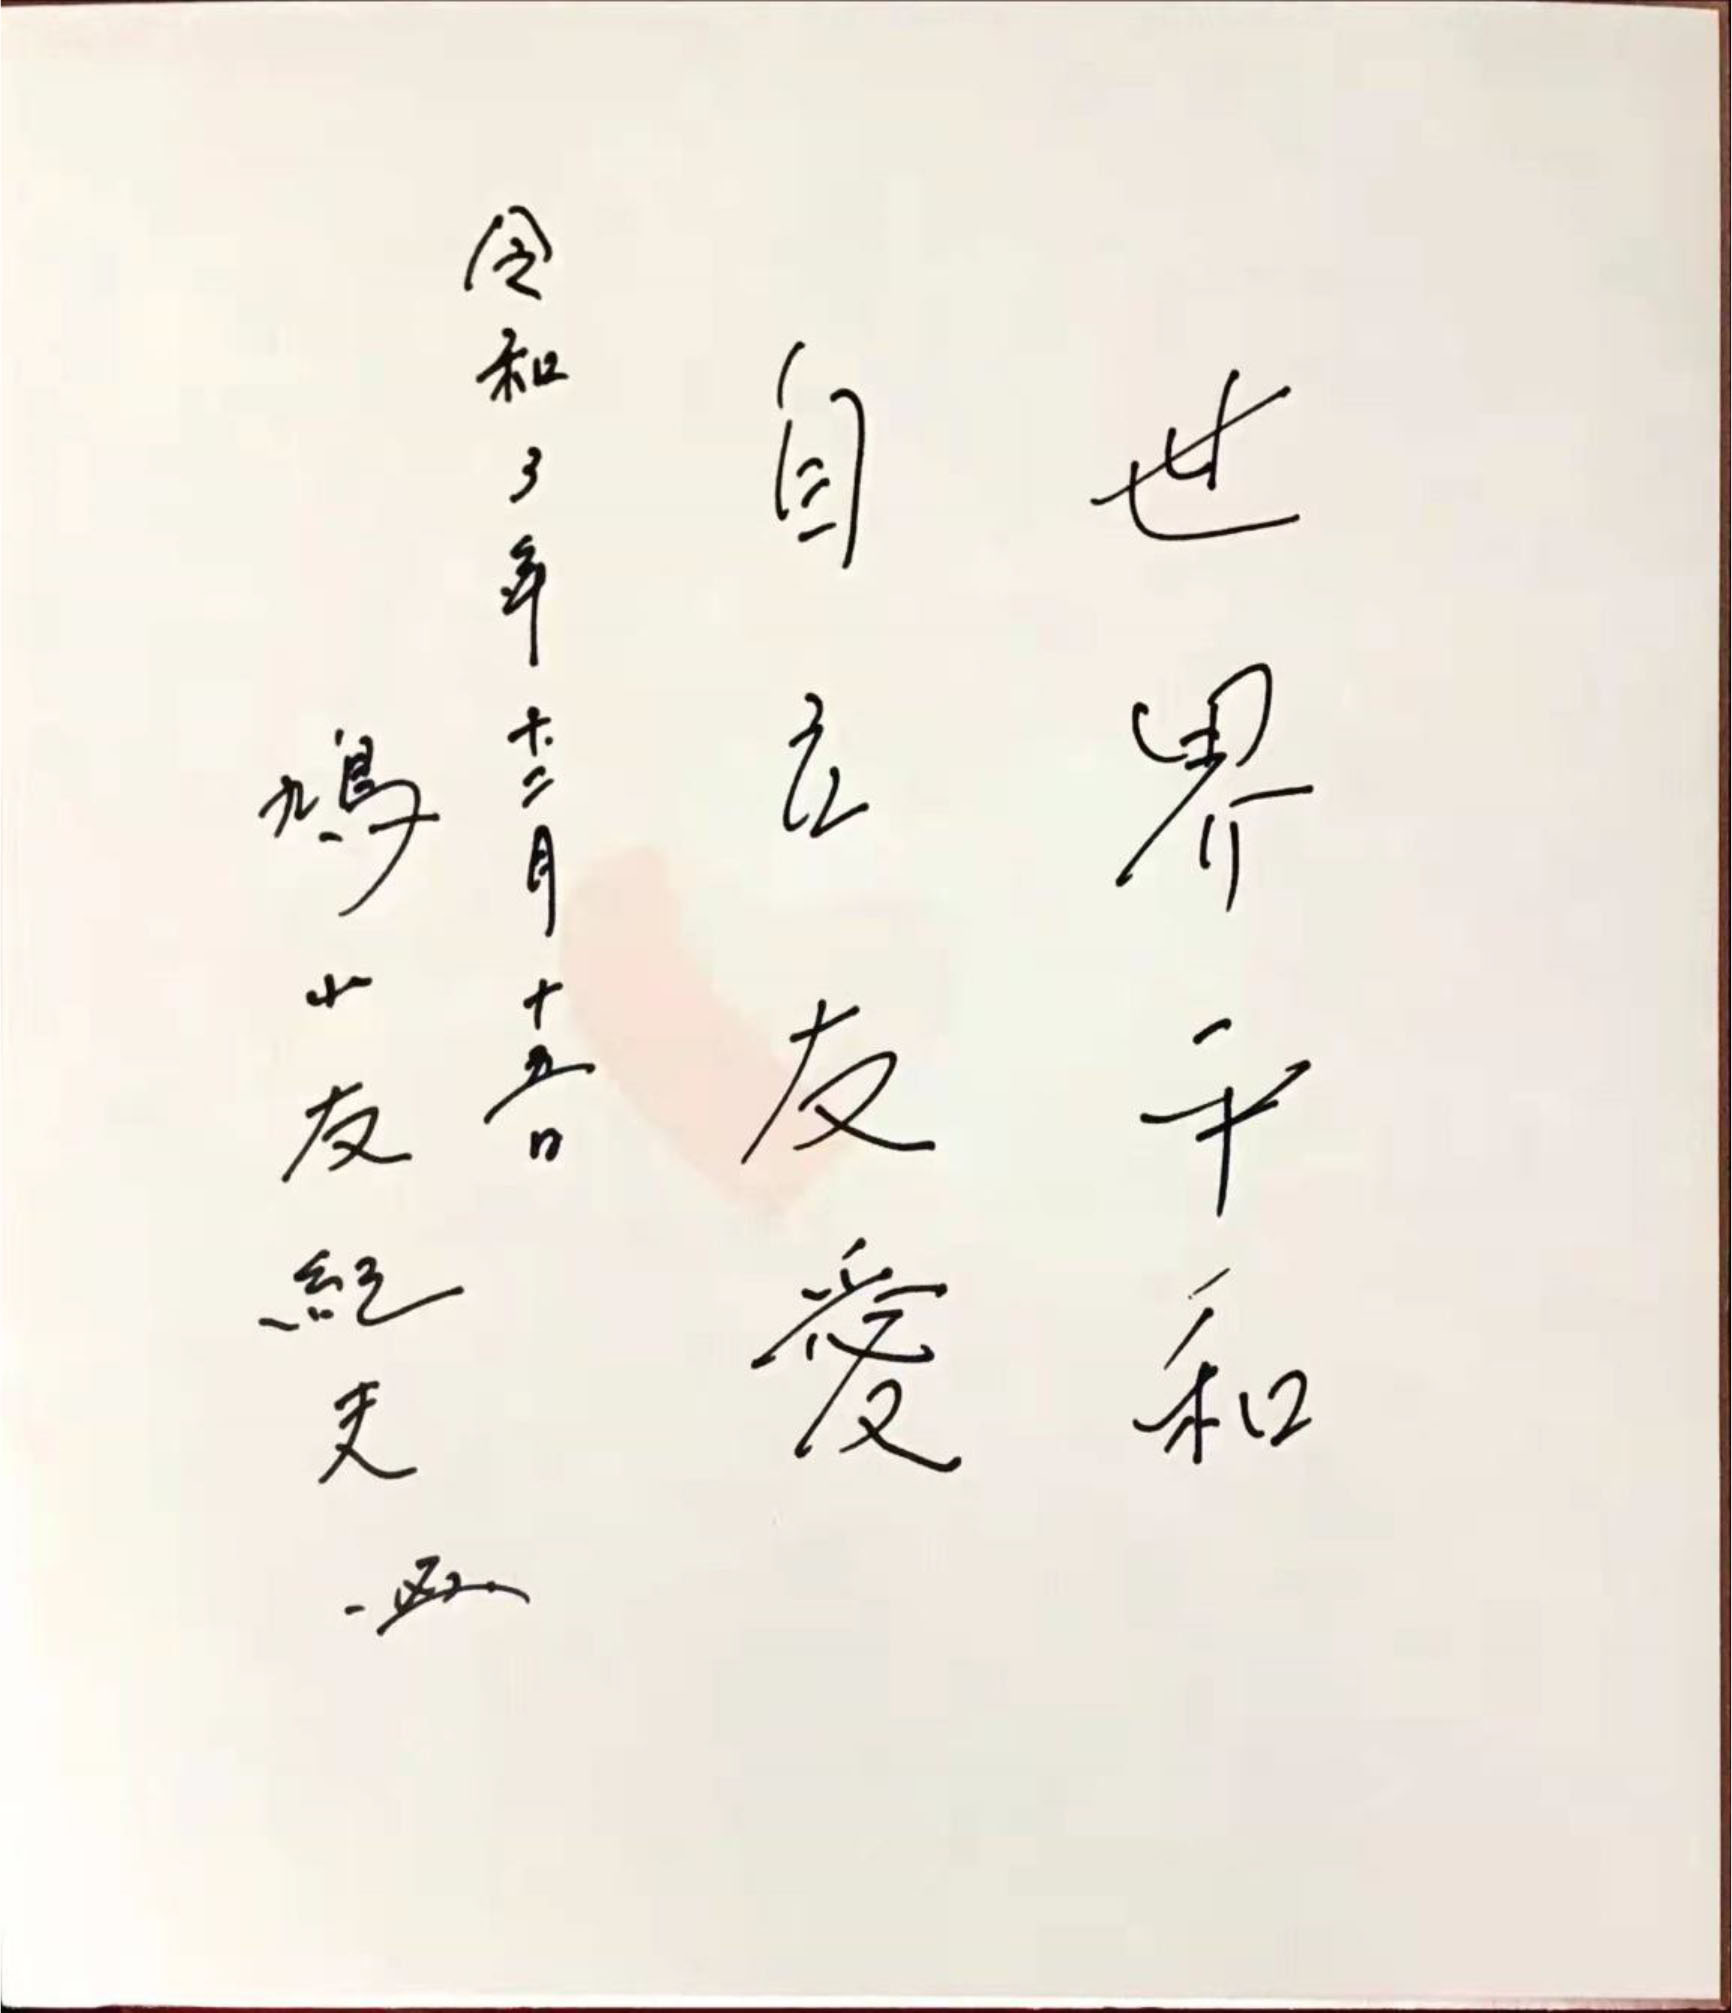 世界平和
自立友愛
令和3年十二月十五日
鳩山友紀夫